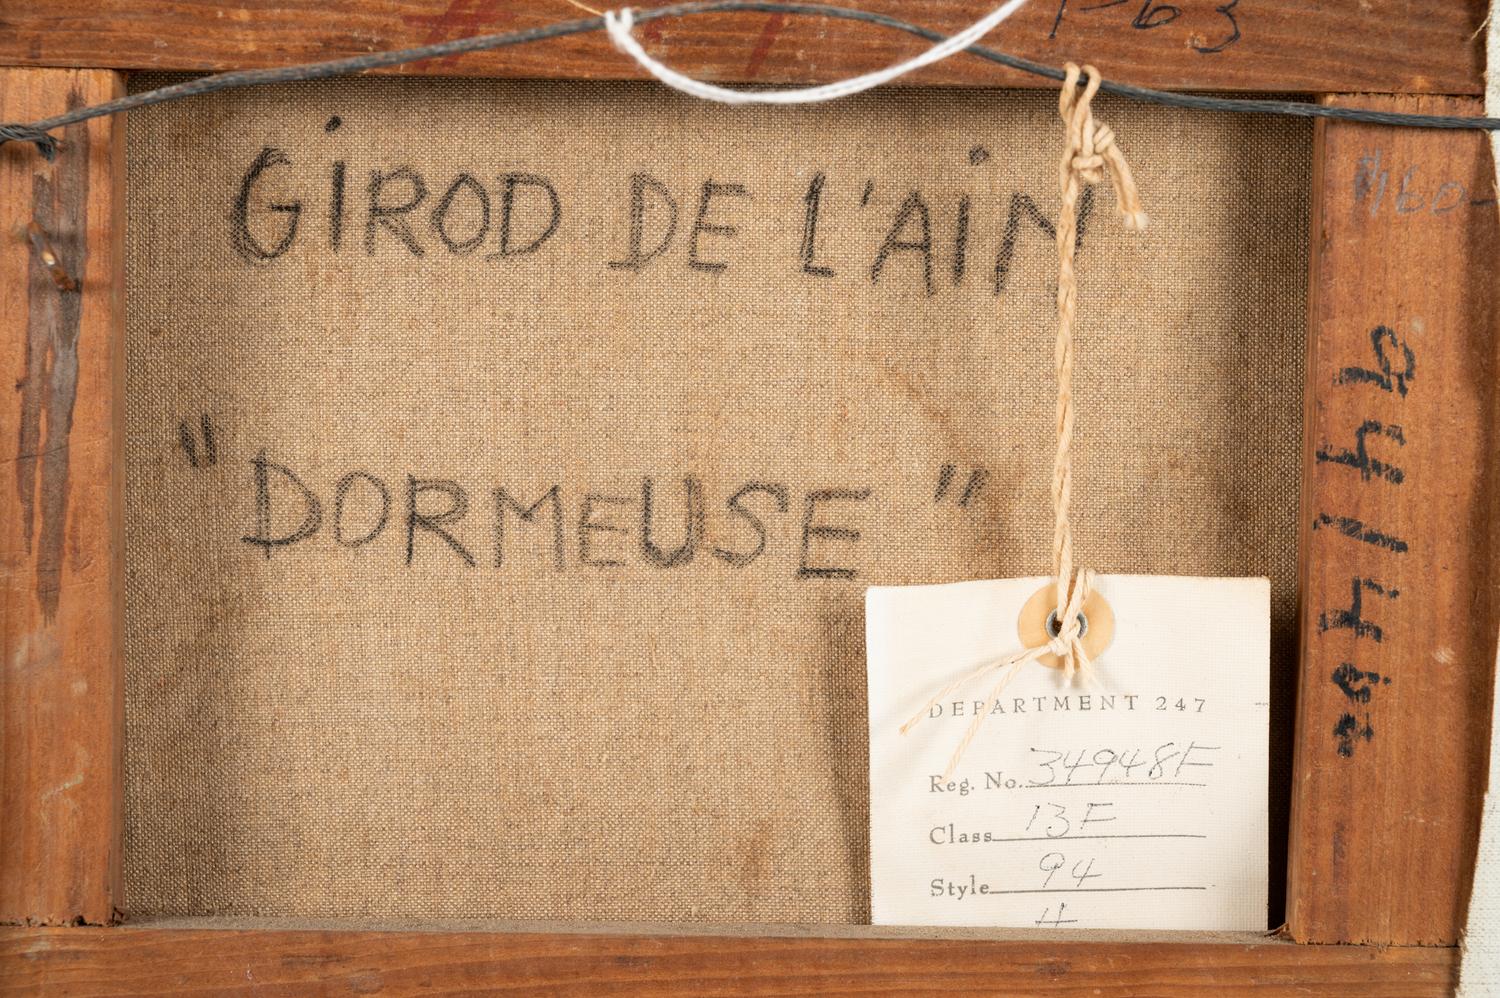 1-63
GiROD DE L'AiN
$160-
"DORMEUSE"
DEPARTMENT 247
Reg. No. 34948F
Class 13F
Style 94